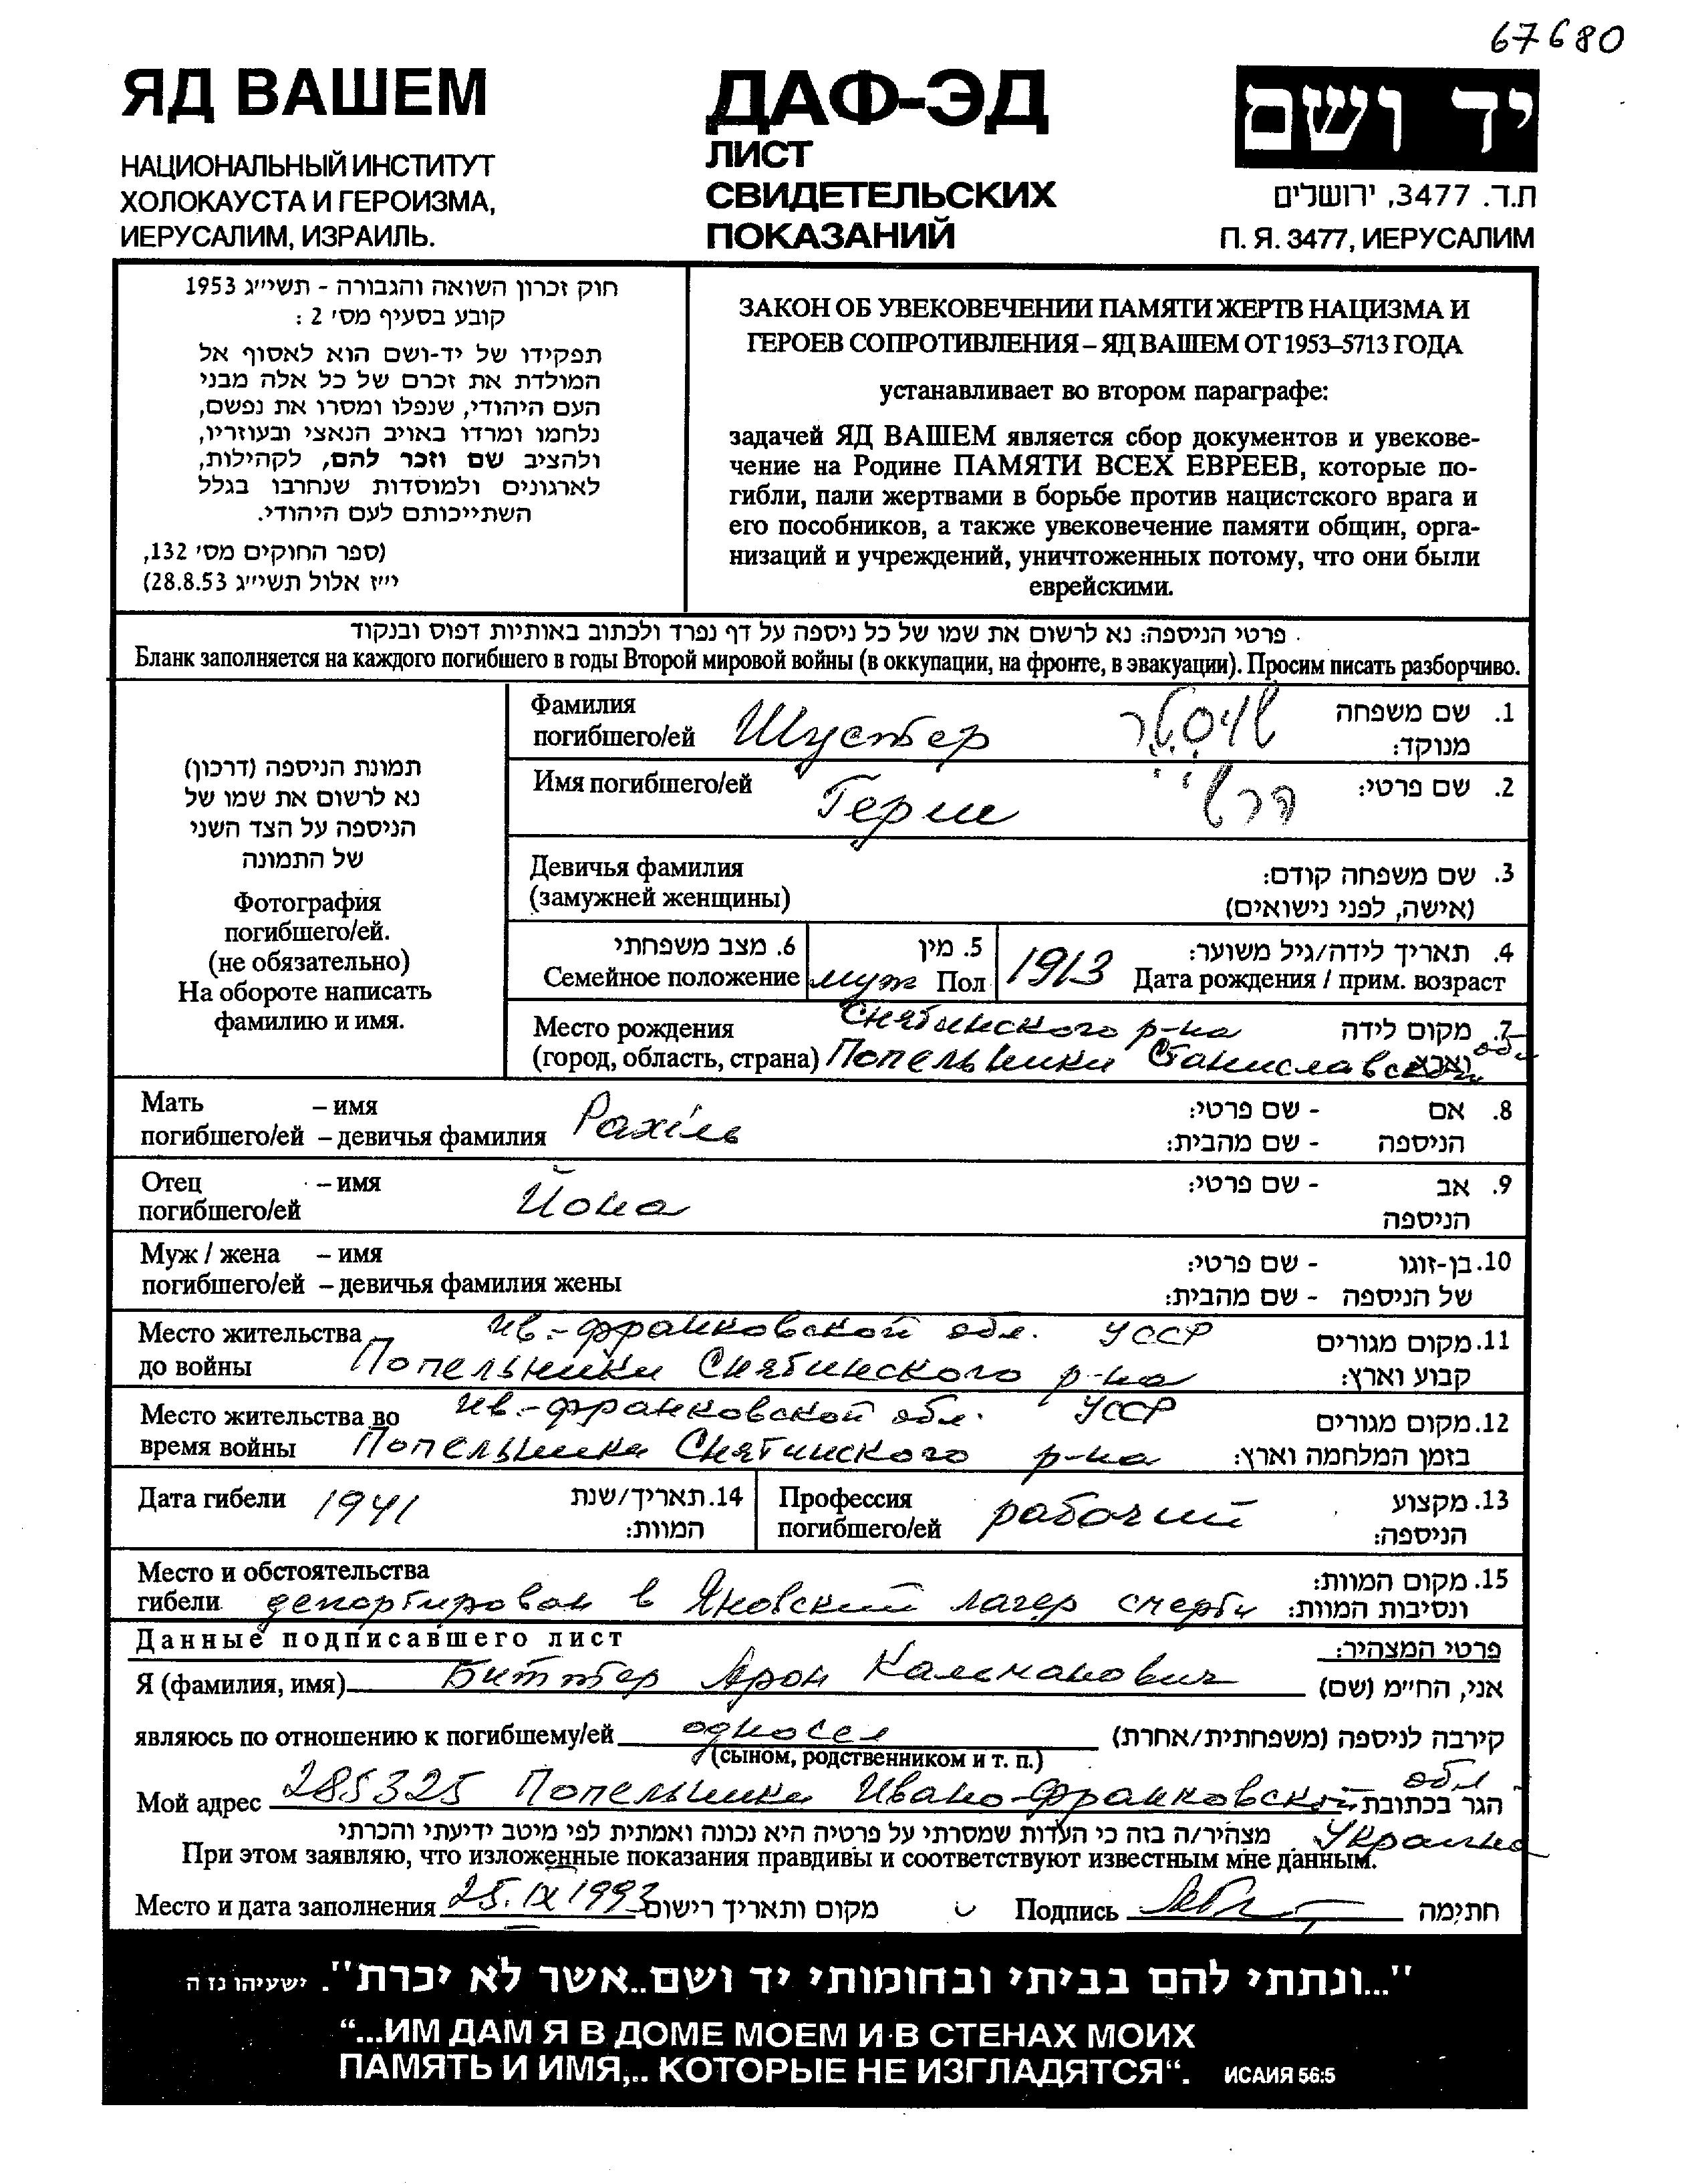 67680
ЯД ВАШЕМ
НАЦИОНАЛЬНЫЙ ИНСТИТУТ
ХОЛОКАУСТА И ГЕРОИЗМА,
ИЕРУСАЛИМ, ИЗРАИЛЬ.
ДАФ-ЭД
ЛИСТ
СВИДЕТЕЛЬСКИХ
ПОКАЗАНИЙ
יד ושם
ת.ד. 3477, ירושלים
П. Я. 3477, ИЕРУСАЛИМ
חוק זכרון השואה והגבורה - תשי״ג 1953
קובע בסעיף מס׳ 2 :
תפקידו של יד-ושם הוא לאסוף אל
המולדת את זכרם של כל אלה מבני
העם היהודי, שנפלו ומסרו את נפשם,
נלחמו ומרדו באויב הנאצי ובעוזריו,
ולהציב שם וזכר להם, לקהילות,
לארגונים ולמוסדות שנחרבו בגלל
השתייכותם לעם היהודי.
(ספר החוקים מס׳ 132,
י״ז אלול תשי״ג 28.8.53)
ЗАКОН ОБ УВЕКОВЕЧЕНИИ ПАМЯТИ ЖЕРТВ НАЦИЗМА И
ГЕРОЕВ СОПРОТИВЛЕНИЯ – ЯД ВАШЕМ ОТ 1953–5713 ГОДА
устанавливает во втором параграфе:
задачей ЯД ВАШЕМ является сбор документов и увекове-
чение на Родине ПАМЯТИ ВСЕХ ЕВРЕЕВ, которые по-
гибли, пали жертвами в борьбе против нацистского врага и
его пособников, а также увековечение памяти общин, орга-
низаций и учреждений, уничтоженных потому, что они были
еврейскими.
פרטי הניספה: נא לרשום את שמו של כל ניספה על דף נפרד ולכתוב באותיות דפוס ובנקוד
Бланк заполняется на каждого погибшего в годы Второй мировой войны (в оккупации, на фронте, в эвакуации). Просим писать разборчиво.
תמונת הניספה (דרכון)
נא לרשום את שמו של
הניספה על הצד השני
של התמונה
Фотография
погибшего/ей.
(не обязательно)
На обороте написать
фамилию и имя.
Фамилия
погибшего/ей Шустер שוסטר
1. שם משפחה
מנוקד:
Имя погибшего/ей Герш הרש 2. שם פרטי:
Девичья фамилия 3. שם משפחה קודם:
(замужней женщины) (אישה, לפני נישואים)
6. מצב משפחתי 5. מין 4. תאריך לידה/גיל משוער:
Семейное положение муж Пол 1913 Дата рождения / прим. возраст
Место рождения Снятинского р-на 7. מקום לידה
(город, область, страна) Попельники Станиславской обл וארץ
Мать – имя Рахіль 8. אם - שם פרטי:
погибшего/ей – девичья фамилия הניספה - שם מהבית:
Отец – имя Йона 9. אב - שם פרטי:
погибшего/ей הניספה
Муж / жена – имя 10. בן-זוגו - שם פרטי:
погибшего/ей – девичья фамилия жены של הניספה - שם מהבית:
Место жительства Ив.-франковской обл. УССР 11. מקום מגורים
до войны Попельники Снятинского р-на קבוע וארץ:
Место жительства во Ив.-франковской обл. УССР 12. מקום מגורים
время войны Попельники Снятинского р-на בזמן המלחמה וארץ:
Дата гибели 1941 14. תאריך/שנת
המוות:
Профессия 13. מקצוע
погибшего/ей рабочий הניספה:
Место и обстоятельства 15. מקום המוות:
гибели депортирован в Яновский лагер смерти ונסיבות המוות:
Данные подписавшего лист פרטי המצהיר:
Я (фамилия, имя) Биттер Арон Калманович אני, הח״מ (שם)
являюсь по отношению к погибшему/ей односел קירבה לניספה (משפחתית/אחרת)
(сыном, родственником и т. п.)
Мой адрес 285325 Попельники Ивано-Франковской обл הגר בכתובת
Украина מצהיר/ה בזה כי העדות שמסרתי על פרטיה היא נכונה ואמתית לפי מיטב ידיעתי והכרתי
При этом заявляю, что изложенные показания правдивы и соответствуют известным мне данным.
Место и дата заполнения 25.IX 1993 מקום ותאריך רישום Подпись חתימה
"...ונתתי להם בביתי ובחומותי יד ושם...אשר לא יכרת". ישעיהו נז ה
“...ИМ ДАМ Я В ДОМЕ МОЕМ И В СТЕНАХ МОИХ
ПАМЯТЬ И ИМЯ,.. КОТОРЫЕ НЕ ИЗГЛАДЯТСЯ“. ИСАИЯ 56:5